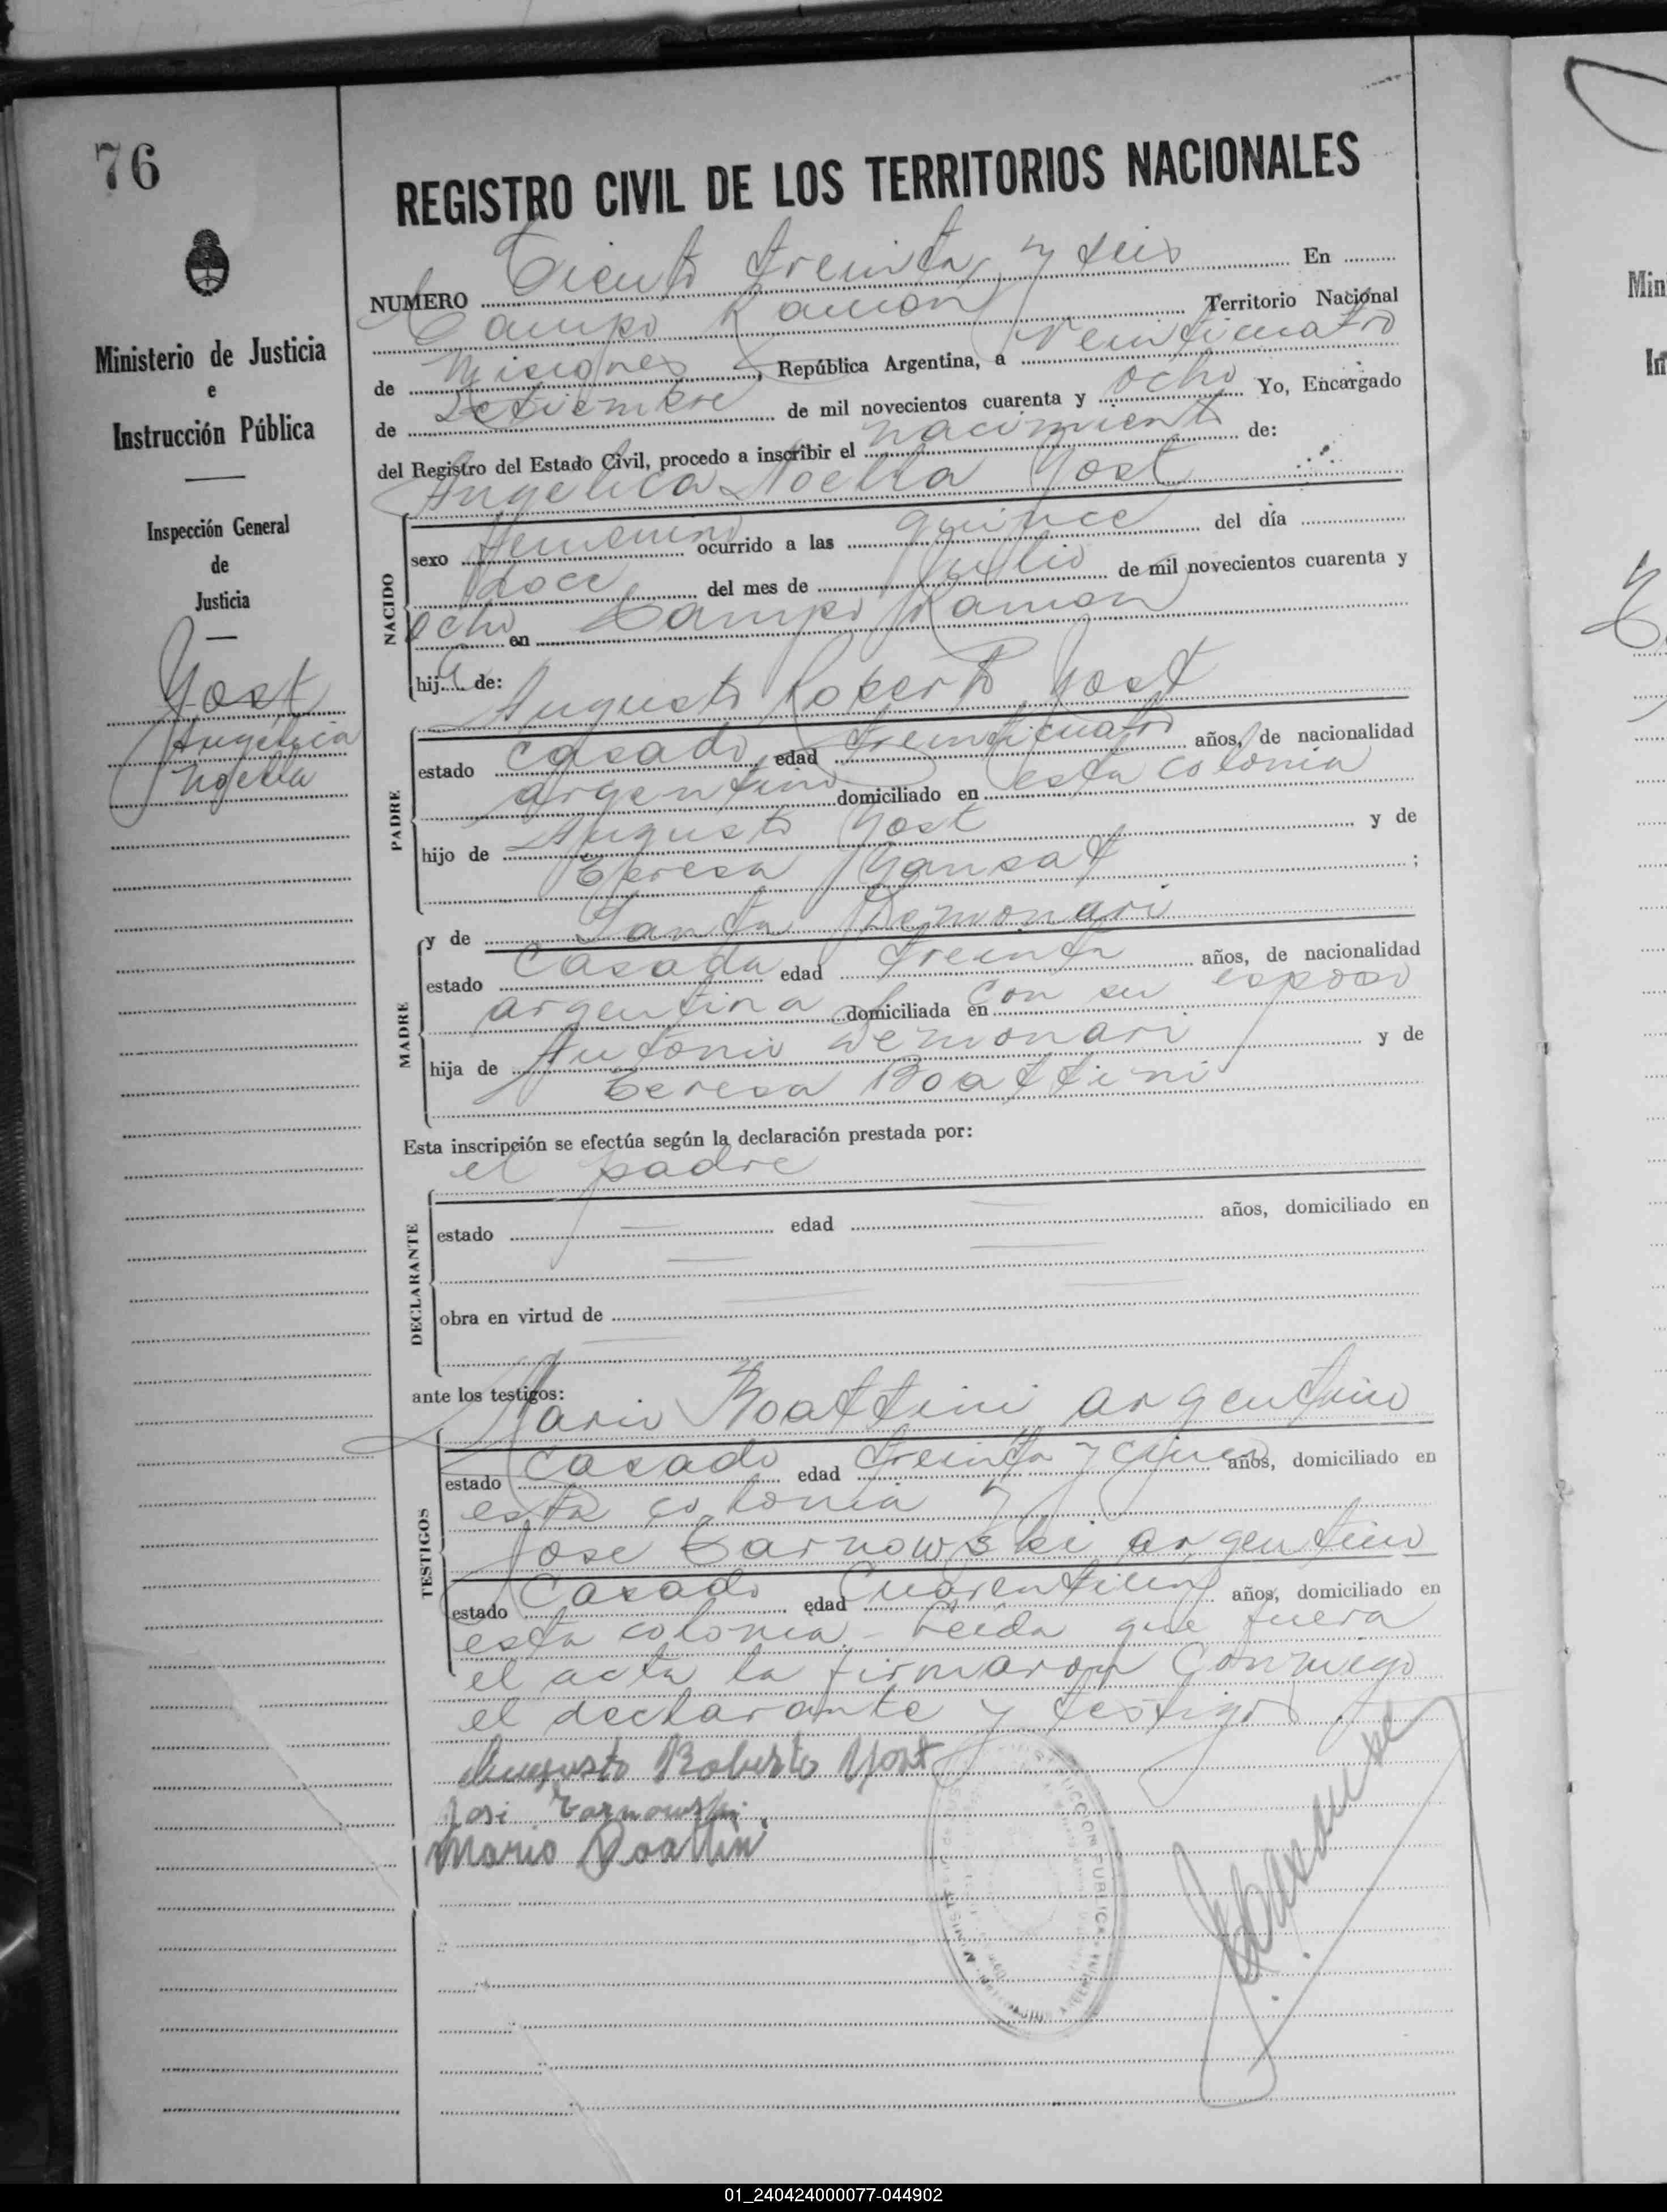 76
Ministerio de Justicia
e
Instrucción Pública
Inspección General
de
Justicia
Yost
Angelica
Noelia
REGISTRO CIVIL DE LOS TERRITORIOS NACIONALES
NUMERO Ciento treinta y seis En
Campo Ramon Territorio Nacional
de Misiones, República Argentina, a Veinticuatro
de Setiembre de mil novecientos cuarenta y ocho Yo, Encargado
del Registro del Estado Civil, procedo a inscribir el nacimiento de:
Angelica Noelia Yost
NACIDO
sexo femenino ocurrido a las quince del día
doce del mes de Julio de mil novecientos cuarenta y
ocho en Campo Ramon
hija de: Augusto Roberto Yost
PADRE
estado casado edad treinticuatro años, de nacionalidad
argentino domiciliado en esta colonia
hijo de Augusto Yost y de
Teresa ;
MADRE
y de Santa Demonari
estado Casada edad treinta años, de nacionalidad
argentina domiciliada en con su esposo
hija de Antonio Demonari y de
Teresa Boattini
Esta inscripción se efectúa según la declaración prestada por:
el padre
DECLARANTE
estado edad años, domiciliado en
obra en virtud de
ante los testigos: Mario Boattini argentino
TESTIGOS
estado casado edad treinta y cinco años, domiciliado en
esta colonia y
Jose Tarnowski argentino
estado Casado edad Cuarentiun años, domiciliado en
esta colonia.- Leida que fuera
el acta la firmaron conmigo
el declarante y testigos
Augusto Roberto Yost
José Tarnowski
Mario Boattini
01_240424000077-044902